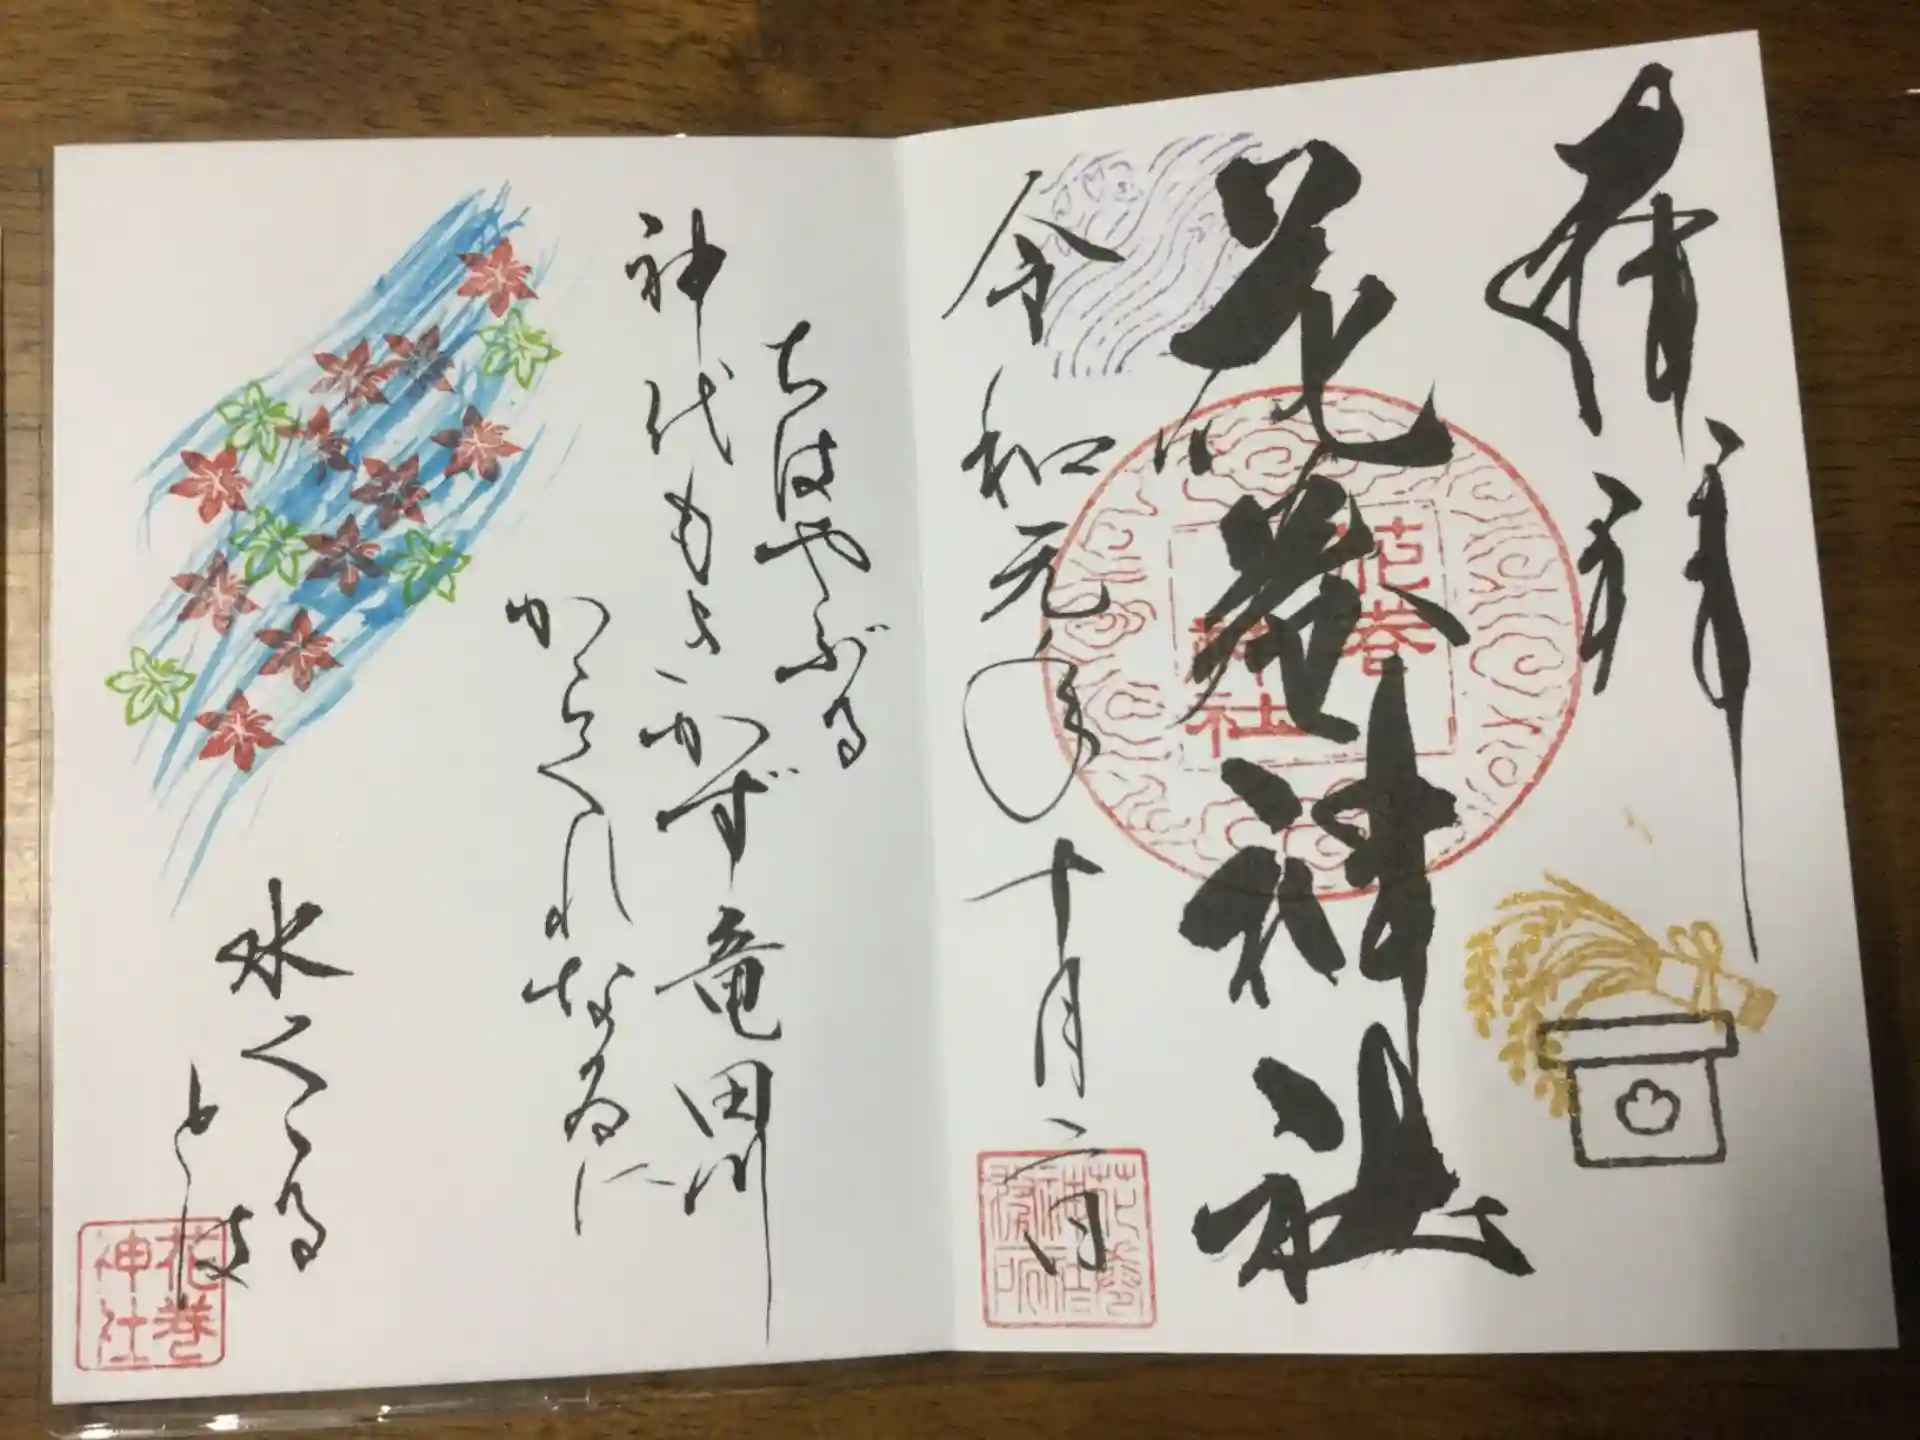 奉拝
花巻神社
花巻
神社
令和元年十月二日
花巻
神社
務所
ちはやぶる
神代もきかず竜田川
からくれなゐに
水くゝる
とは
花巻
神社